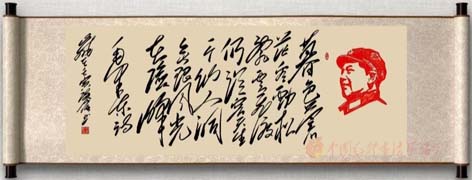 暮色苍
茫看劲松
乱云飞渡
仍从容天生
一个仙人洞
无限风光
在险峰
毛主席诗